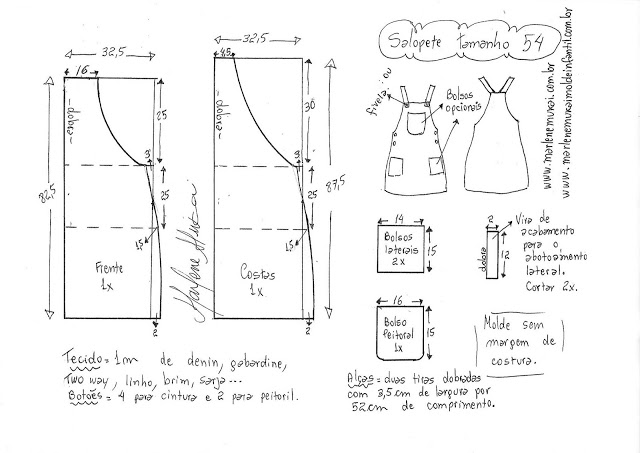 Salopete tamanho 54
www.marlenemukai.com.br
www.marlenemukaimoldeinfantil.com.br
32,5
16
dobra
25
3
82,5
25
1,5
Frente
1x
2
32,5
4,5
dobra
30
3
87,5
25
1,5
Costas
1x
2
Marlene Mukai
fivela ou
Bolsos
opcionais
14
Bolsos
laterais
2x
15
2
dobra
12
Vira de
acabamento
para o
abotoamento
lateral.
Cortar 2x.
16
Bolso
peitoral
1x
15
Molde sem
margem de
costura.
Tecido = 1m de denin, gabardine,
Two way, linho, brim, sarja...
Botões = 4 para cintura e 2 para peitoril.
Alças = duas tiras dobradas
com 3,5cm de largura por
52cm de comprimento.